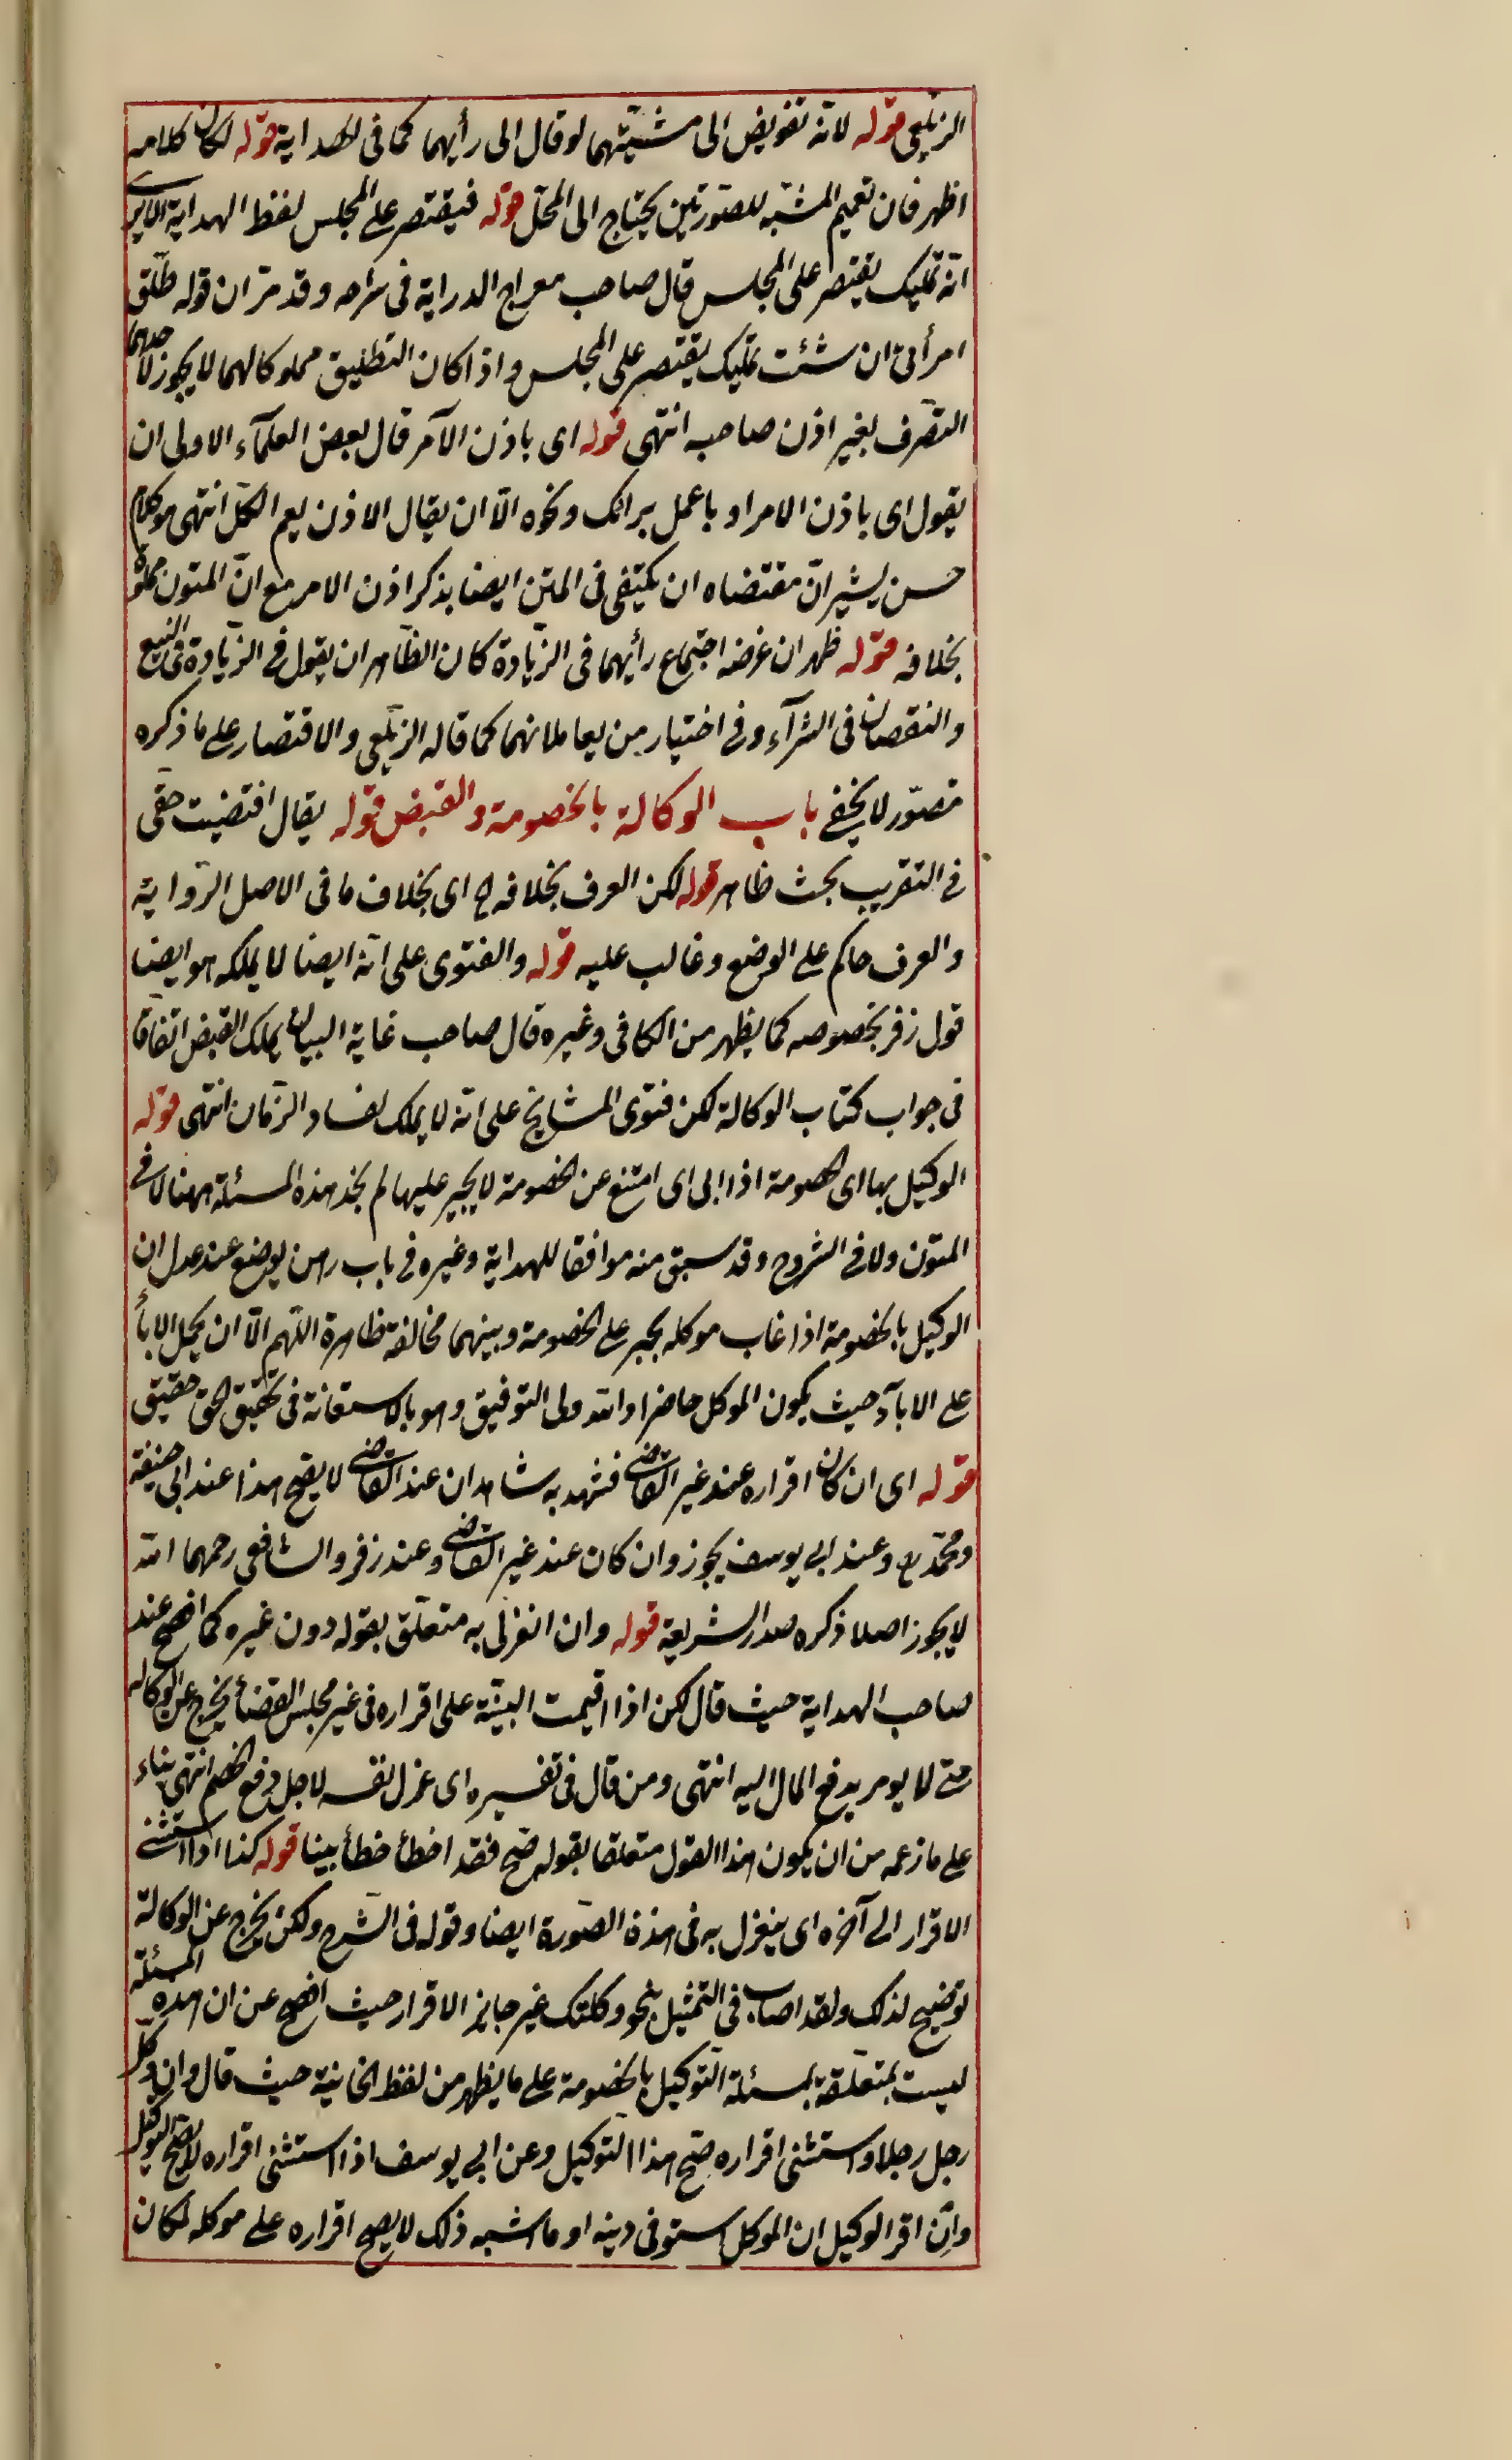 الزيلعي قوله لانه تفويض الى مشيّتهما لو قال الى رأيهما كما فى الهداية قوله لكان كلامه
اظهر فان تعميم المشبّه للصّورتين يحتاج الى المحلّ قوله فيقتصر على المجلس لفظ الهداية الا يرى
انّه تمليك يقتصر على المجلس قال صاحب معراج الدراية فى شرحه وقد مرّ ان قوله طلّق
امرأتى ان شئت تمليك يقتصر على المجلس واذا كان التطليق مملوكا لهما لا يجوز لاحدهما
التصّرف بغير اذن صاحبه انتهى قوله اى باذن الآمر قال بعض العلمآء الاولى ان
يقول اى باذن الامر او باعمل برائك ونحوه الّا ان يقال الاذن يعم الكلّ انتهى هو كلام
حسن يشير انّ مقتضاه ان يكتفى فى المتن ايضا بذكر اذن الامر مع انّ المتون مملوّة
بخلافه قوله ظهر ان غرضه اجتماع رأيهما فى الزّيادة كان الظّاهر ان يقول فى الزّيادة فى البيع
والنقصان فى الشرآء وفى اختيار من يعاملانهما كما قاله الزيلعي والاقتصار على ما ذكره
قصوّر لا يخفى باب الوكالة بالخصومة والقبض قوله يقال اقتضيت حقى
فى التقريب بحث ظاهر قوله لكن العرف بخلافه اى بخلاف ما فى الاصل الرّواية
والعرف حاكم على الوضع وغالب عليه قوله والفتوى على انّه ايضا لا يملكه هو ايضا
قول زفر بخصوصه كما يظهر من الكافى وغيره قال صاحب غاية البيان يملك القبض اتفاقا
فى جواب كتاب الوكالة لكن فتوى المشايخ على انّه لا يملك لفساد الزّمان انتهى قوله
الوكيل بها اى بالخصومة اذا ابى اى امتنع عن الخصومة لا يجبر عليها لم نجد هذه المسئلة ههنا لا فى
المتون ولا فى الشروح وقد سبق منه موافقا للهداية وغيره فى باب رهن يوضع عند عدل ان
الوكيل بالخصومة اذا غاب موكله يجبر على الخصومة وبينهما مخالفة ظاهرة اللّهم الّا ان يحمل الابأ
على الابآء حيث يكون الموكل حاضرا والله ولى التوفيق وهو بالاستعانة فى تحقيق الحق حقيق
قوله اى ان كان اقراره عند غير القاضى فشهد به شاهدان عند القاضى لا يصح هذا عند ابى حنيفة
ومحمّد رح وعند ابى يوسف يجوز وان كان عند غير القاضى وعند زفر والشافعى رحمهما الله
لا يجوز اصلا ذكره صدر الشريعة قوله وان انعزل به متعلّق بقوله دون غيره كما افصح عنه
صاحب الهداية حيث قال لكن اذا اقيمت البيّنة على اقراره فى غير مجلس القضأ يخرج عن الوكاله
حتى لا يومر بدفع المال اليه انتهى ومن قال فى تفسيره اى عزل نفسه لاجل دفع الخصم انتهى بناء
على ما زعمه من ان يكون هذا القول متعلقا بقوله صّح فقد اخطأ خطأ بينا قوله كذا اذا استثنى
الاقرار الى آخره اى ينعزل به فى هذه الصّورة ايضا وقوله فى الشّرح ولكن يخرج عن الوكالة
توضيح لذلك ولقد اصاب فى التمثيل بنحو وكلتك غير جايز الاقرار حيث افصح عن ان هذه المسئلة
ليست بمتعلّقة بمسئلة التوكيل بالخصومة على ما يظهر من لفظ الخانية حيث قال وان وكّل
رجل رجلا واستثنى اقراره صّح هذا التوكيل وعن ابى يوسف اذا استثنى اقراره لا يصّح التوكيل
وانّ اقر الوكيل ان الموكل استوفى دينه او ما اشبه ذلك لا يصح اقراره على موكله لمكان